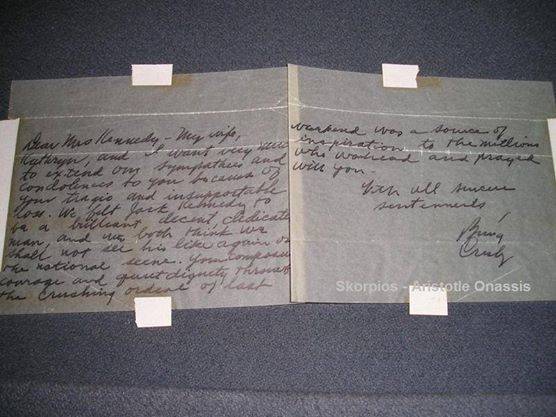 Dear Mrs Kennedy - My wife,
Kathryn, and I want very much
to extend our sympathies and
condolences to you because of
your tragic and insupportable
loss. We felt Jack Kennedy to
be a brilliant, decent, dedicated
man, and we both think we
shall not see his like again on
the national scene. Your composure
courage and quiet dignity through
the crushing ordeal of last
weekend was a source of
inspiration to the millions
who watched and prayed
with you.
With all sincere
sentiments
Bing
Crosby
Skorpios - Aristotle Onassis